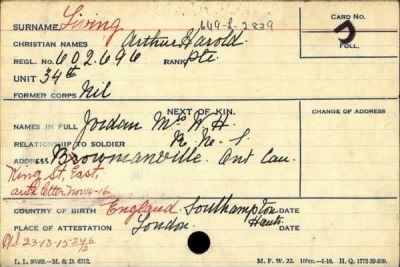 649-L-2839
SURNAME Living
CARD No.
CHRISTIAN NAMES Arthur Harold.
FOLL.
REGL. No. 602696 RANK Pte.
UNIT 34th
FORMER CORPS Nil
NEXT OF KIN.
CHANGE OF ADDRESS
NAMES IN FULL Jordan Mrs W. H.
RELATIONSHIP TO SOLDIER N. N. S.
ADDRESS Bowmanville. Ont Can.
King St. East
auth letter Nov 14-16.
COUNTRY OF BIRTH England. Southampton DATE
Hants.
PLACE OF ATTESTATION London DATE
23-10-15
L. L. M. & D. 6712.
M. F. W. 22. 100m.-1-16. H. Q. 1772-39-839.